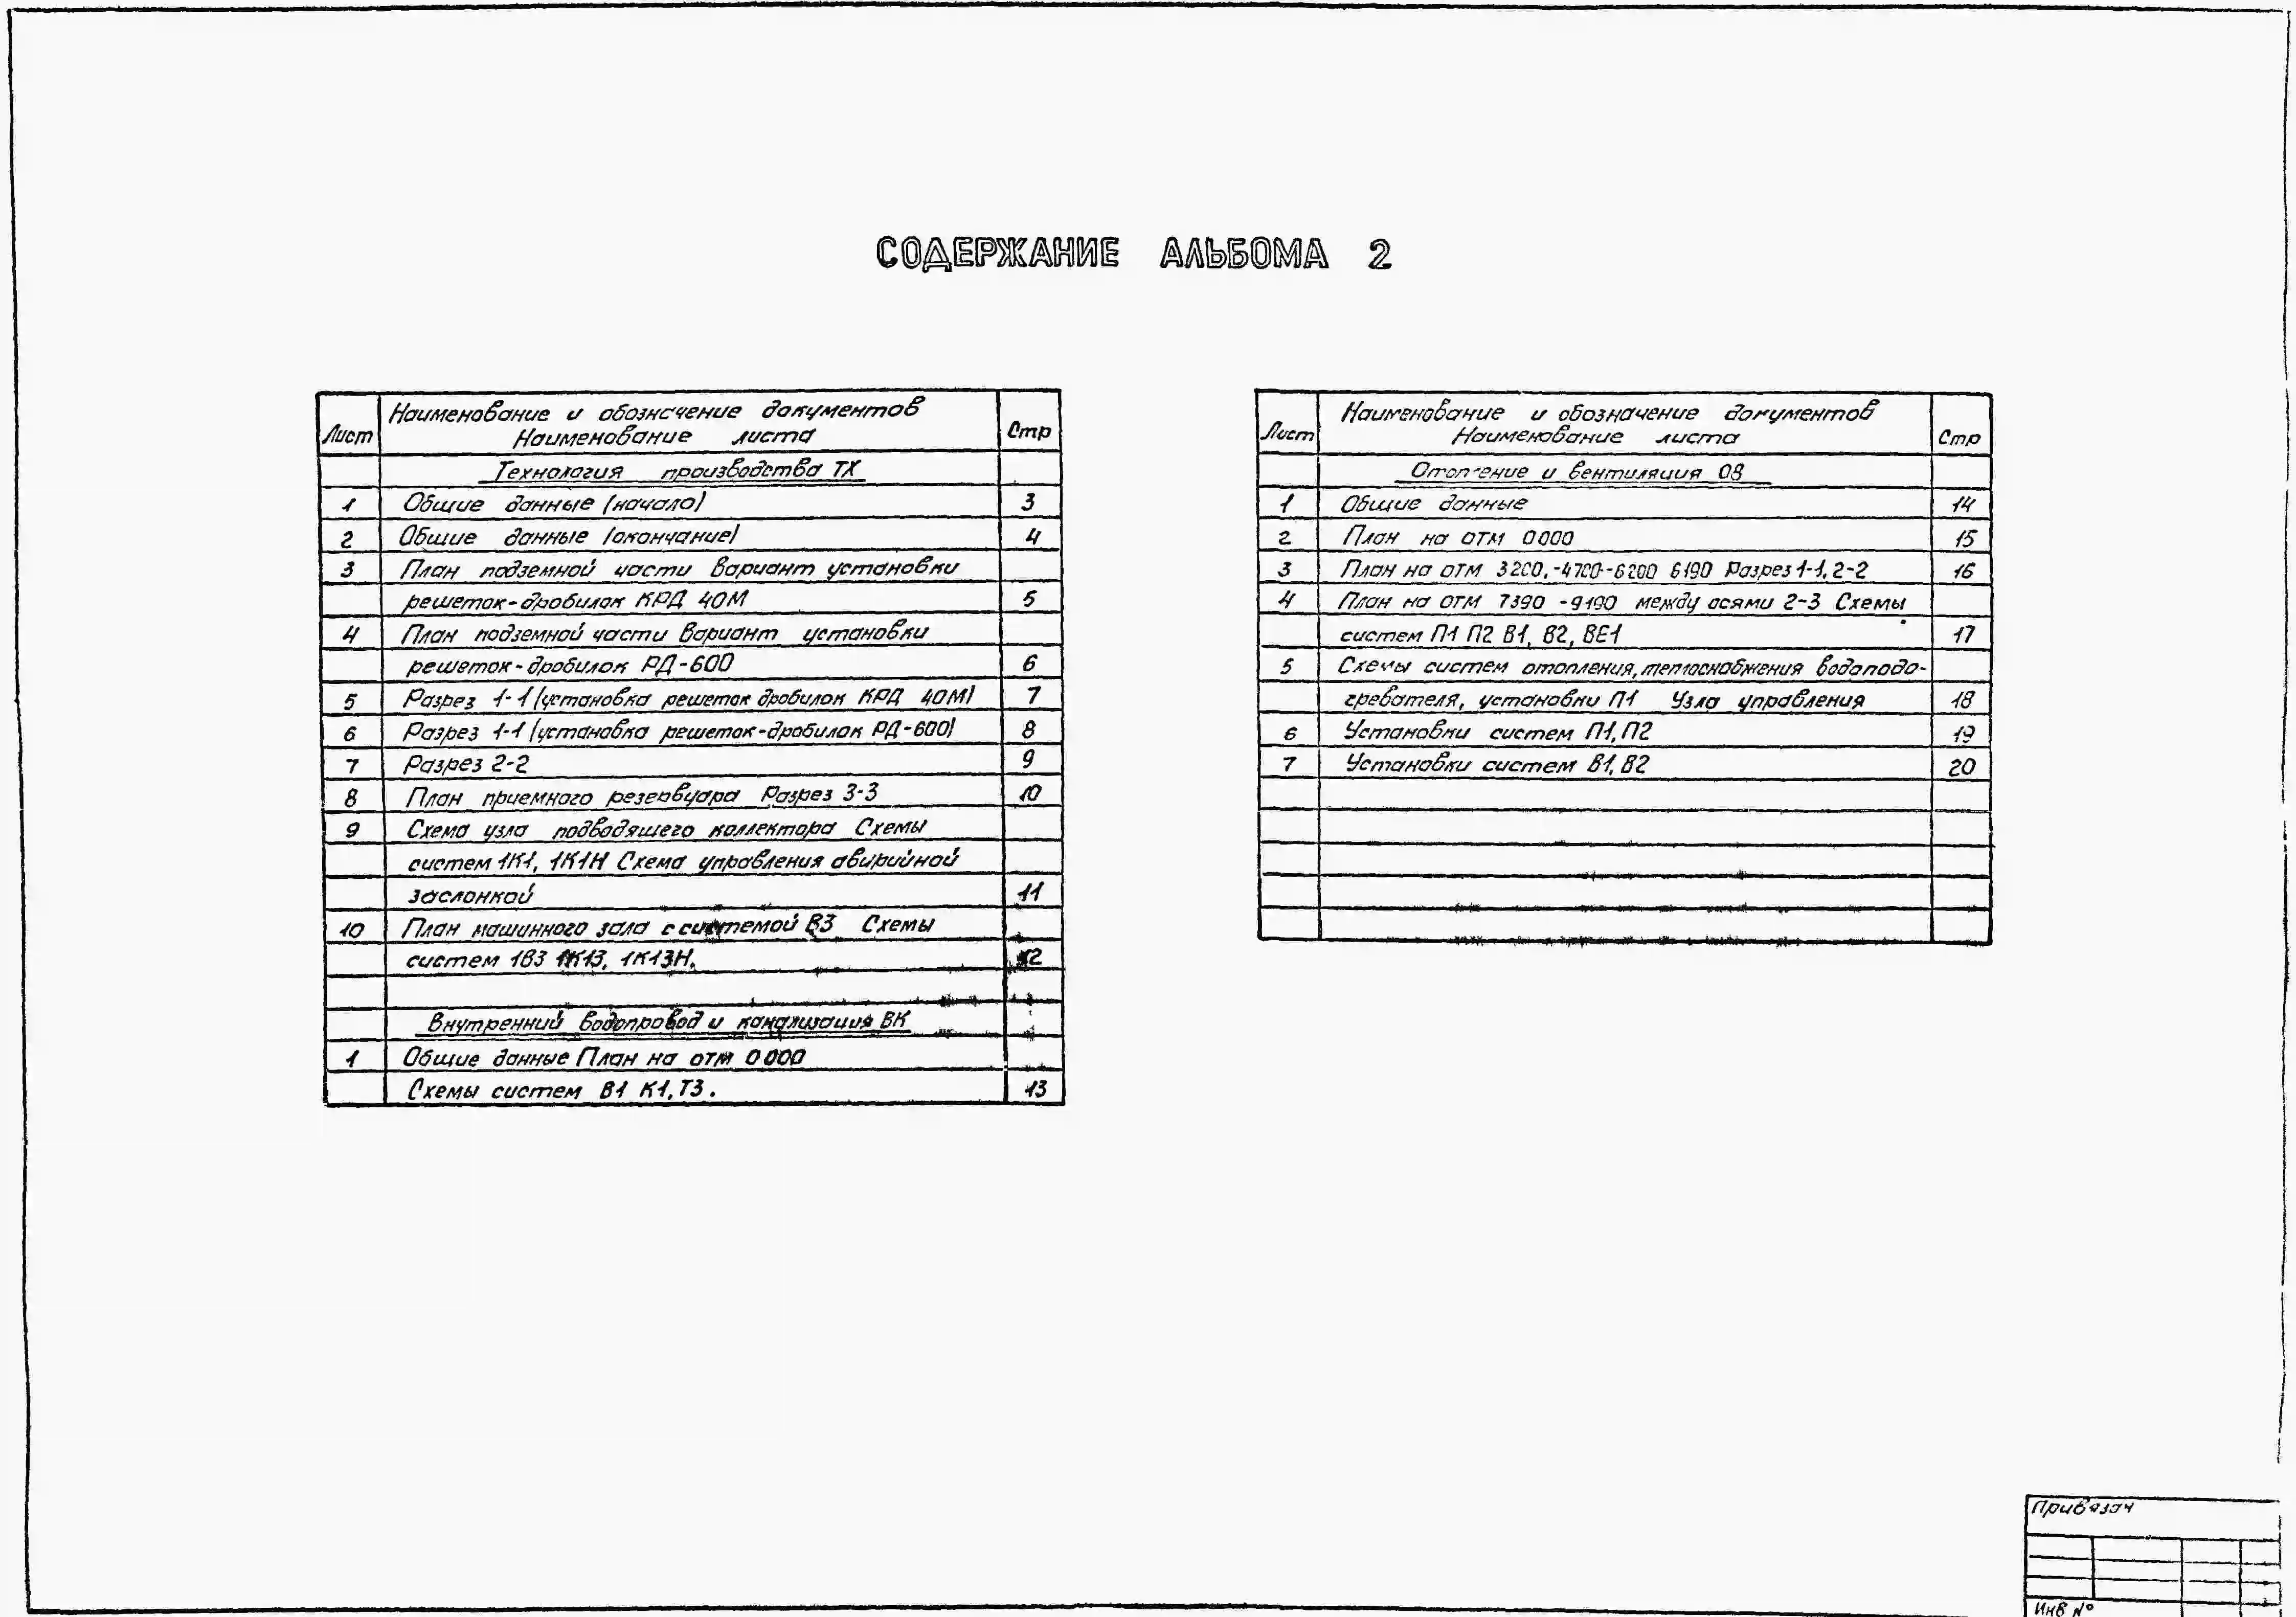 СОДЕРЖАНИЕ АЛЬБОМА 2
Лист Наименование и обозначение документов Стр
Наименование листа
Технология производства ТХ
1 Общие данные (начало) 3
2 Общие данные (окончание) 4
3 План подземной части Вариант установки
решеток-дробилок КРД 40М 5
4 План подземной части Вариант установки
решеток-дробилок РД-600 6
5 Разрез 1-1 (установка решеток дробилок КРД 40М) 7
6 Разрез 1-1 (установка решеток-дробилок РД-600) 8
7 Разрез 2-2 9
8 План приемного резервуара Разрез 3-3 10
9 Схема узла подводящего коллектора Схемы
систем 1К1, 1К1Н Схема управления авирийной
заслонкой 11
10 План машинного зала с системой В3 Схемы
систем 1В3 1К13, 1К13Н. 12
Внутренний водопровод и канализация ВК
1 Общие данные План на отм 0000
Схемы систем В1 К1, Т3. 13
Лист Наименование и обозначение документов Стр
Наименование листа
Отопление и вентиляция ОВ
1 Общие данные 14
2 План на отм 0000 15
3 План на отм 3200, -4700 -6200 6190 Разрез 1-1, 2-2 16
4 План на отм 7390 -9190 между осями 2-3 Схемы
систем П1 П2 В1, В2, ВЕ1 17
5 Схемы систем отопления, теплоснабжения водоподо-
гревателя, установки П1 Узла управления 18
6 Установки систем П1, П2 19
7 Установки систем В1, В2 20
Привязан
Инв №